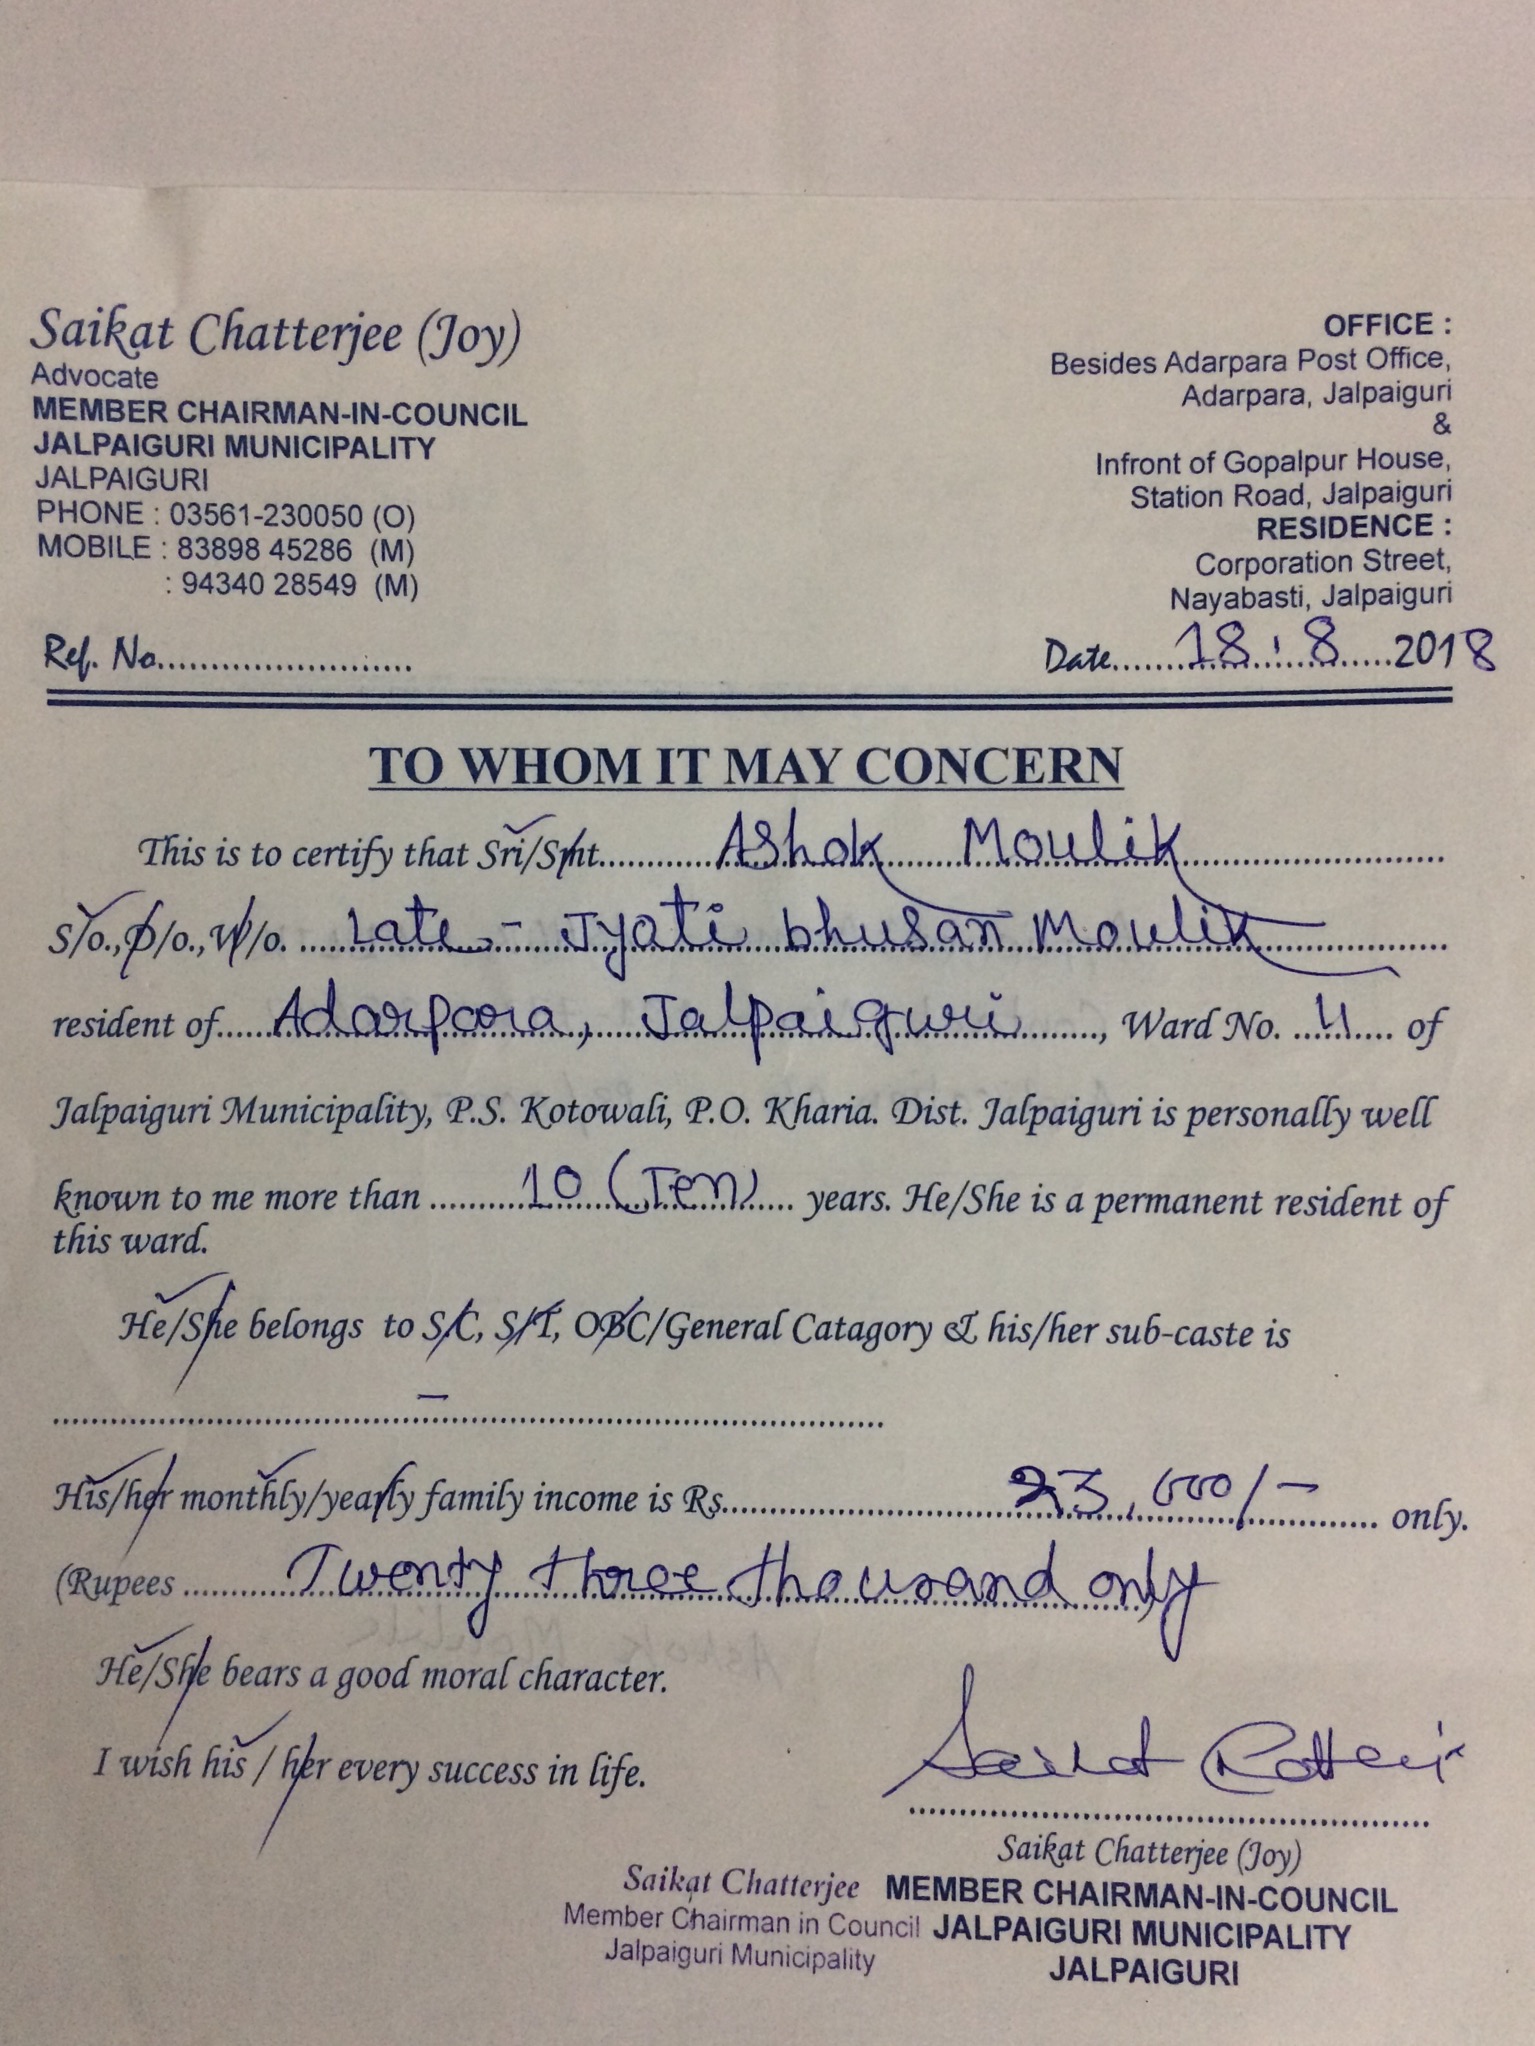 Saikat Chatterjee (Joy)
Advocate
MEMBER CHAIRMAN-IN-COUNCIL
JALPAIGURI MUNICIPALITY
JALPAIGURI
PHONE : 03561-230050 (O)
MOBILE : 83898 45286 (M)
: 94340 28549 (M)
OFFICE :
Besides Adarpara Post Office,
Adarpara, Jalpaiguri
&
Infront of Gopalpur House,
Station Road, Jalpaiguri
RESIDENCE :
Corporation Street,
Nayabasti, Jalpaiguri
Ref. No........................
Date.......18.8.....2018
TO WHOM IT MAY CONCERN
This is to certify that Sri/Smt............Ashok Moulik............
S/o.,D/o.,W/o. .....Late - Jyoti bhusan Moulik............
resident of......Adarpara, Jalpaiguri........, Ward No. ...11.... of
Jalpaiguri Municipality, P.S. Kotowali, P.O. Kharia. Dist. Jalpaiguri is personally well
known to me more than .........10 (Ten)..... years. He/She is a permanent resident of
this ward.
He/She belongs to S/C, S/T, OBC/General Catagory & his/her sub-caste is
–
His/her monthly/yearly family income is Rs..............23,000/-......... only.
(Rupees ..........Twenty three thousand only
He/She bears a good moral character.
I wish his / her every success in life.
Saikat Chatterjee
Saikat Chatterjee (Joy)
MEMBER CHAIRMAN-IN-COUNCIL
JALPAIGURI MUNICIPALITY
JALPAIGURI
Saikat Chatterjee
Member Chairman in Council
Jalpaiguri Municipality